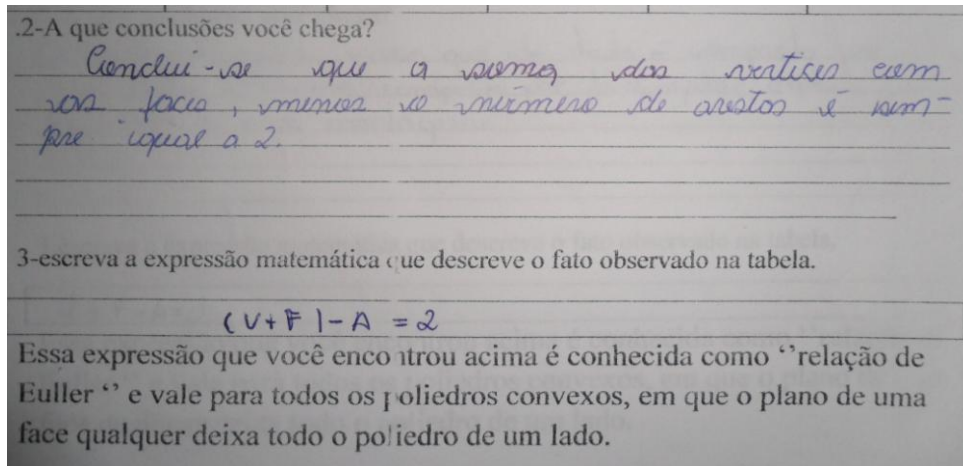 .2-A que conclusões você chega?
Conclui-se que a soma dos vertices com
as faces, menos o número de arestas é sem-
pre igual a 2.
3-escreva a expressão matemática que descreve o fato observado na tabela.
(V+F)-A = 2
Essa expressão que você encontrou acima é conhecida como ‘’relação de
Euller ‘’ e vale para todos os poliedros convexos, em que o plano de uma
face qualquer deixa todo o poliedro de um lado.